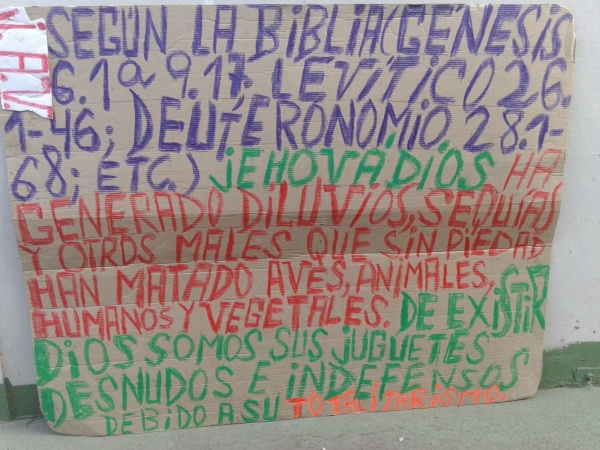 ¡¡A.V.!
SEGÚN LA BIBLIA(GÉNESIS
6.1 a 9.17. LEVÍTICO 26.
1-46; DEUTERONOMIO. 28.1-
68; ETC.) JEHOVÁ, DIOS HA
GENERADO DILUVIOS, SEQUÍAS
Y OTROS MALES QUE SIN PIEDAD
HAN MATADO AVES, ANIMALES,
HUMANOS Y VEGETALES. DE EXISTIR
DIOS SOMOS SUS JUGUETES
DESNUDOS E INDEFENSOS
DEBIDO A SU TOTALITARISMO.